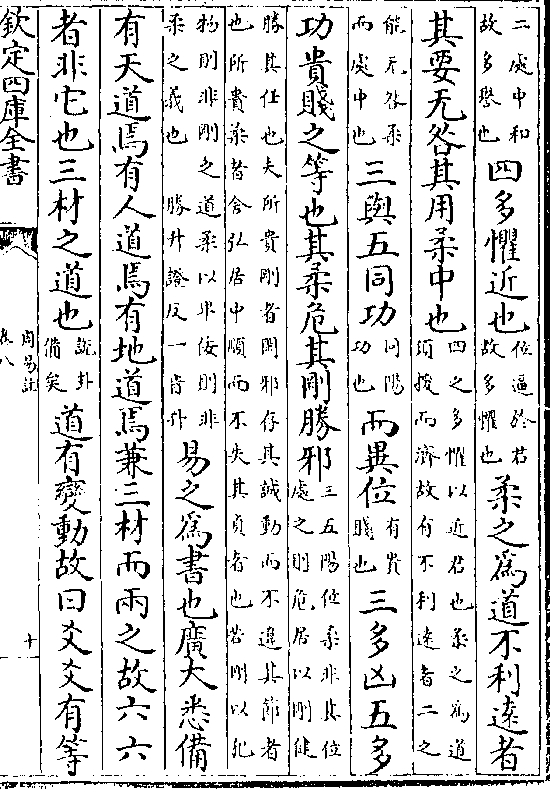 二處中和故多譽也四多懼近也位逼於君故多懼也柔之為道不利遠者
其要无咎其用柔中也四之多懼以近君也柔之為道須援而濟故有不利遠者二之
能无咎柔而處中也三與五同功同陽功也而異位有貴賤也三多凶五多
功貴賤之等也其柔危其剛勝邪三五陽位柔非其位處之則危居以剛健
勝其任也夫所貴剛者閑邪存其誠動而不違其節者也所貴柔者含弘居中順而不失其貞者也若剛以犯
物則非剛之道柔以卑佞則非柔之義也勝升證反一音升易之為書也廣大悉備
有天道焉有人道焉有地道焉兼三材而兩之故六六
者非它也三材之道也說卦備矣道有變動故曰爻爻有等
欽定四庫全書
周易註
卷八
十